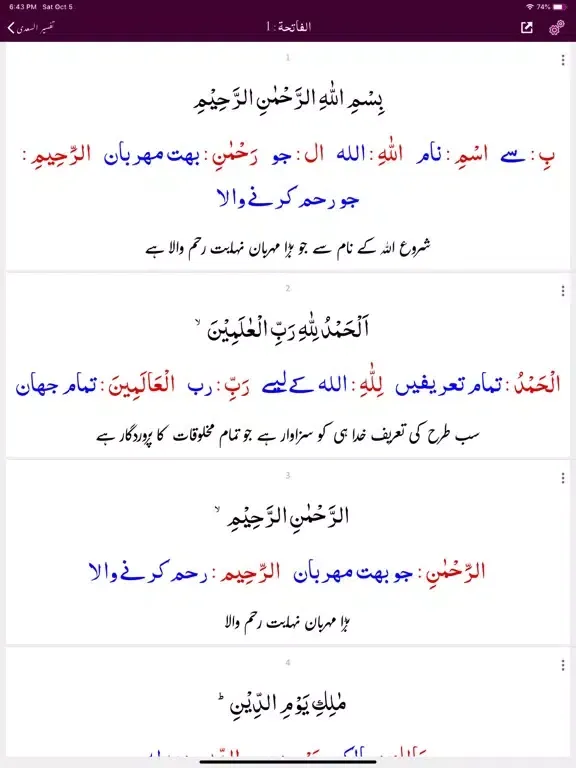 6:43 PM Sat Oct 5 74%
تفسیر السعدی الفاتحة : 1
1
بِسْمِ اللّٰهِ الرَّحْمٰنِ الرَّحِيْمِ
بِ: سے اسْمِ: نام اللّٰهِ: الله ال: جو رَحْمٰنِ: بهت مهربان الرَّحِيمِ:
جو رحم کرنے والا
شروع اللہ کے نام سے جو بڑا مہربان نہایت رحم والا ہے
2
اَلْحَمْدُ لِلّٰهِ رَبِّ الْعٰلَمِيْنَ ۙ
الْحَمْدُ: تمام تعریفیں لِلّٰهِ: الله کے لیے رَبِّ: رب الْعَالَمِينَ: تمام جهان
سب طرح کی تعریف خدا ہی کو سزاوار ہے جو تمام مخلوقات کا پروردگار ہے
3
الرَّحْمٰنِ الرَّحِيْمِ ۙ
الرَّحْمٰنِ: جو بهت مهربان الرَّحِيم: رحم کرنے والا
بڑا مہربان نہایت رحم والا
4
مٰلِكِ يَوْمِ الدِّيْنِ ؕ